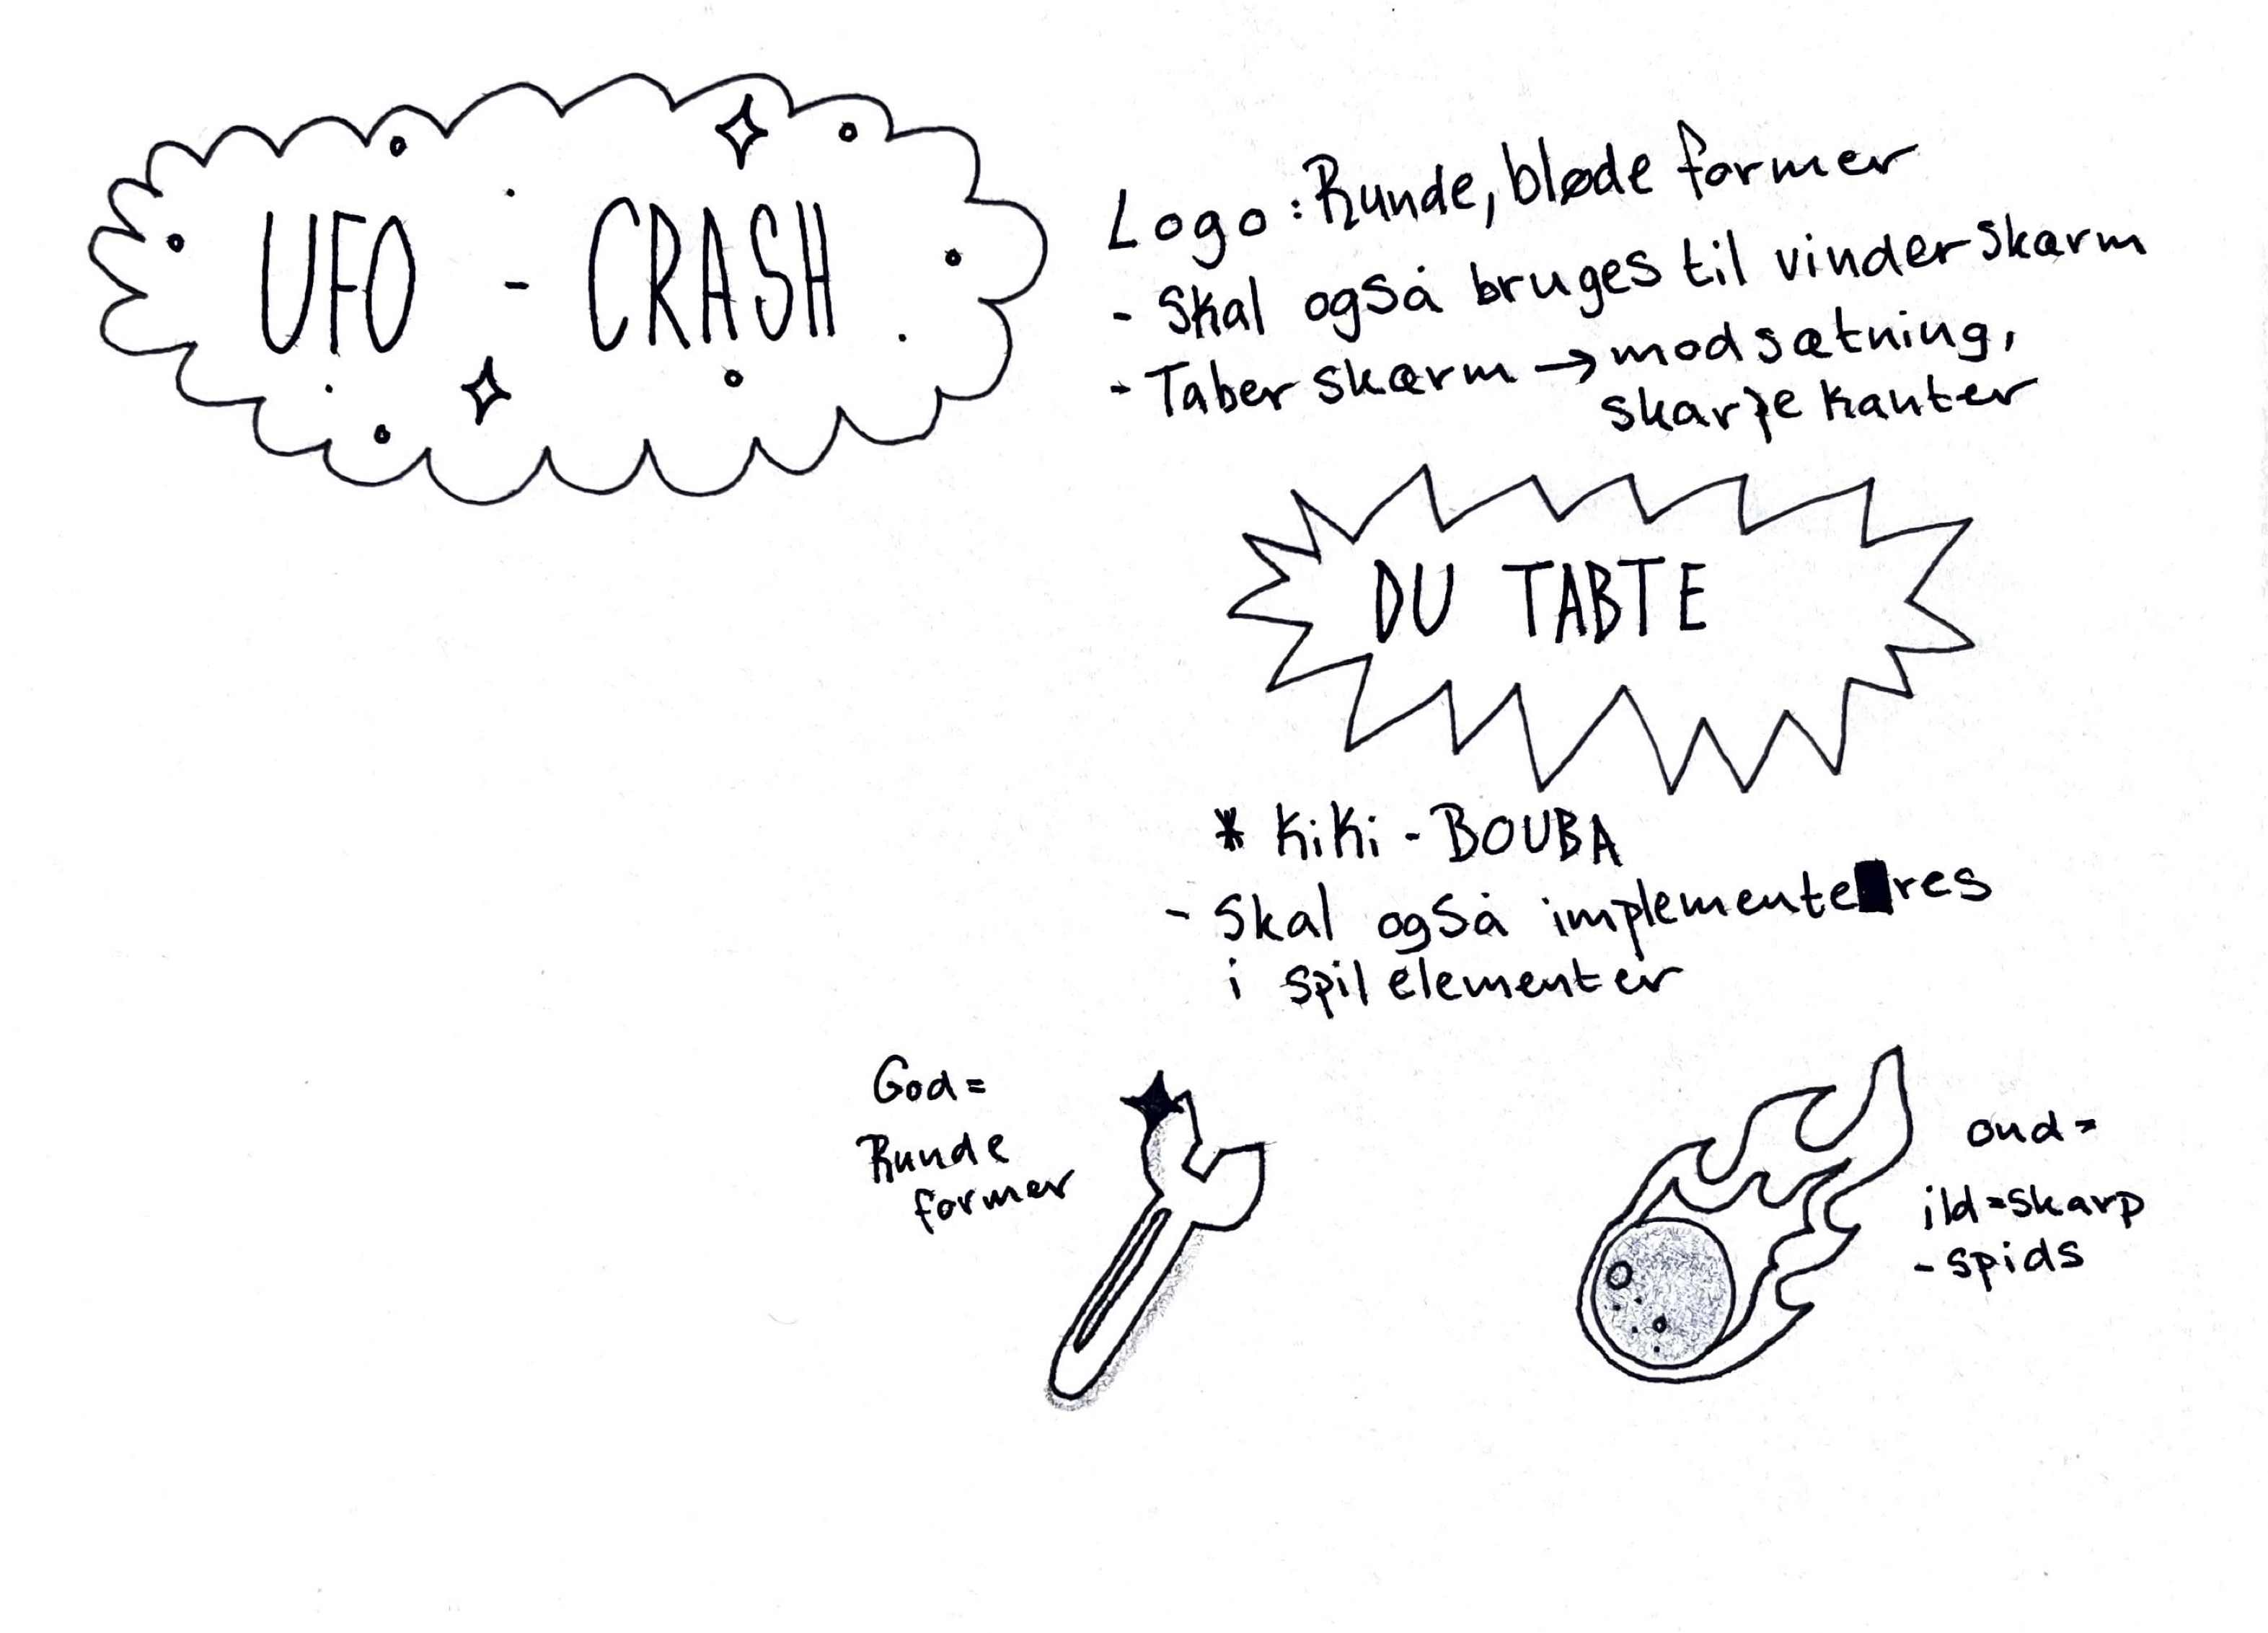 UFO - CRASH
Logo: Runde, bløde former
- Skal også bruges til vinderskærm
- Taber skærm → modsætning,
skarpe kanter
DU TABTE
* KiKi - BOUBA
- Skal også implementeres
i spil elementer
God =
Runde
former
ond =
ild = skarp
- spids